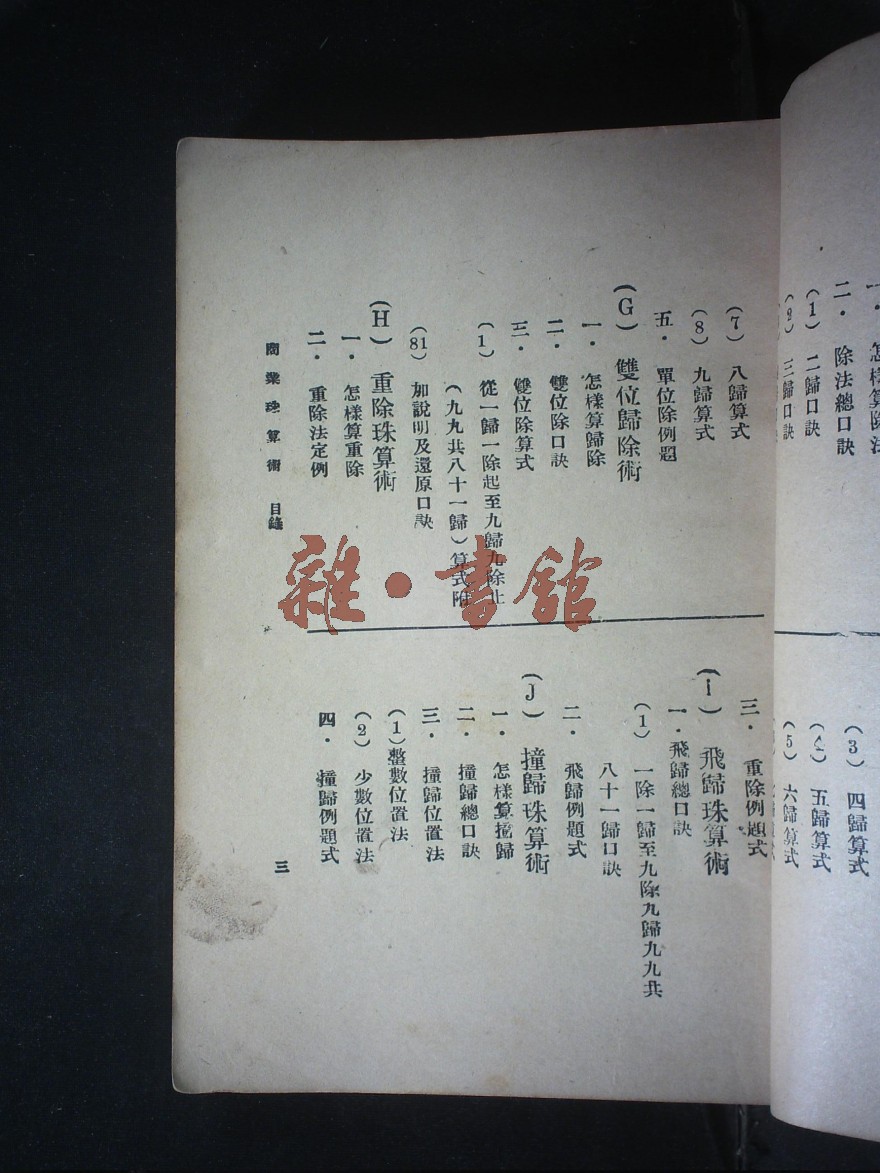 一．怎樣算除法
二．除法總口訣
（1）二歸口訣
（2）三歸口訣
（3）四歸算式
五歸算式
（5）六歸算式
（7）八歸算式
（8）九歸算式
五．單位除例題
（G）雙位歸除術
一．怎樣算歸除
二．雙位除口訣
三．雙位除算式
（1）從一歸一除起至九歸九除止
（九九共八十一歸）算式附
（81）加說明及還原口訣
（H）重除珠算術
一．怎樣算重除
二．重除法定例
三．重除例題式
（I）飛歸珠算術
一．飛歸總口訣
（1）一除一歸至九除九歸九九共
八十一歸口訣
二．飛歸例題式
（J）撞歸珠算術
一．怎樣算撞歸
二．撞歸總口訣
三．撞歸位置法
（1）整數位置法
（2）少數位置法
四．撞歸例題式
商業珠算術 目錄
三
雜・書館